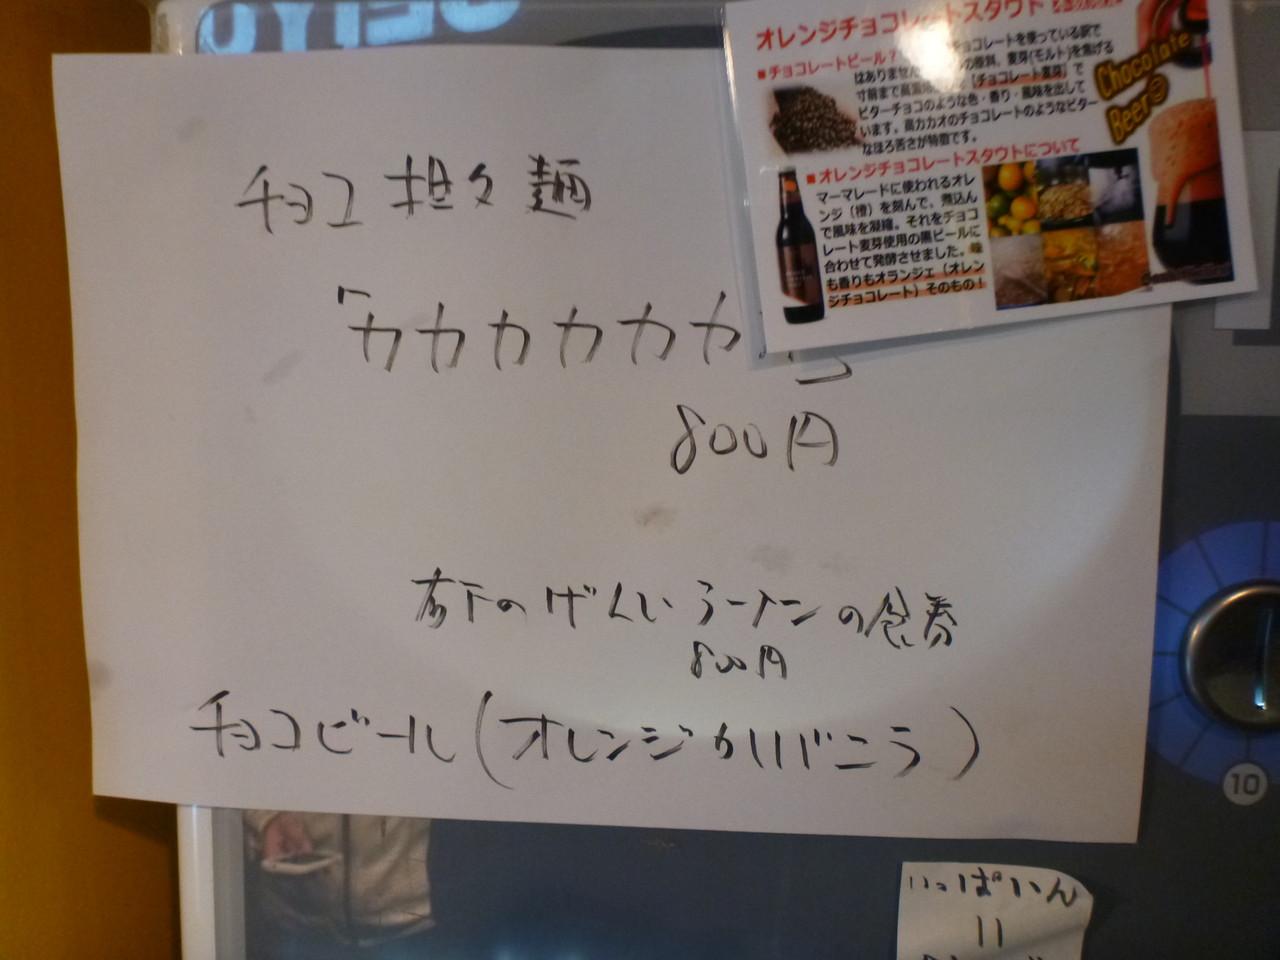 チョコ担々麺
「カカカカカカ
800円
右下のげんしいラーメンの食券
800円
チョコビール(オレンジかいばこう)
オレンジチョコレートスタウト
■チョコレートビール?
チョコレートを使っている訳で
はありません
の原料、麦芽(モルト)を焦げる
寸前まで高温
「チョコレート麦芽」で
ビターチョコのような色・香り・風味を出して
います。高カカオのチョコレートのようなビター
なほろ苦さが特徴です。
Chocolate
Beer
■オレンジチョコレートスタウトについて
マーマレードに使われるオレ
ンジ(橙)を刻んで、煮込ん
で風味を凝縮。それをチョコ
レート麦芽使用の黒ビールに
合わせて発酵させました。味
も香りもオランジェ(オレン
ジチョコレート)そのもの!
10
いっぱいん